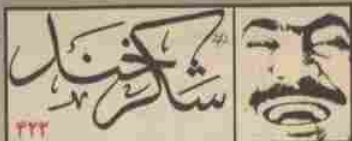 شکرخند
۳۲۳